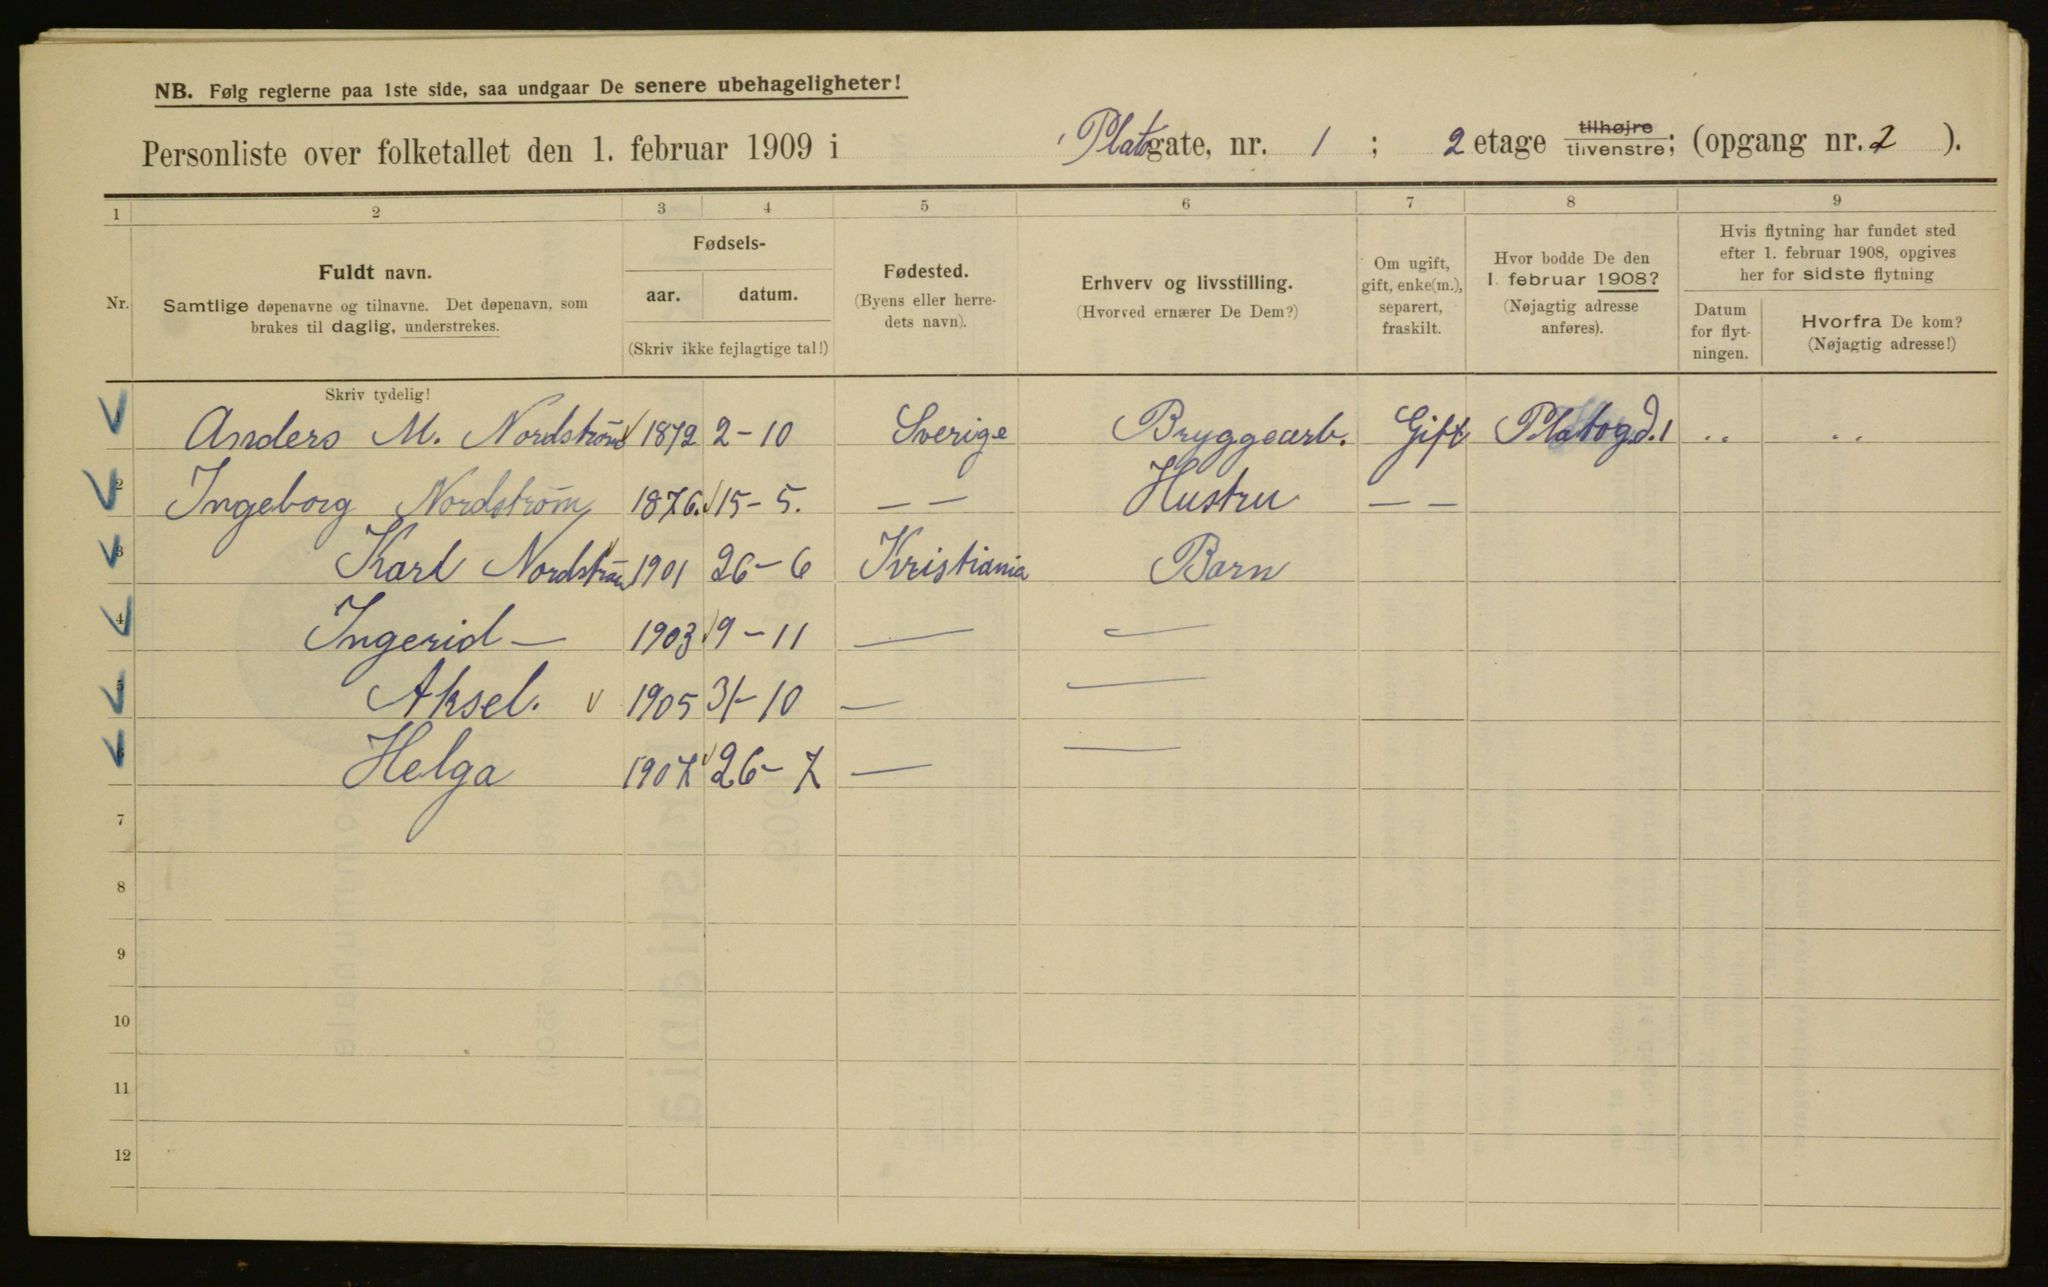 NB. Følg reglerne paa 1ste side, saa undgaar De senere ubehageligheter!
Personliste over folketallet den 1. februar 1909 i Platogate, nr. 1; 2 etage tilhøjre tilvenstre; (opgang nr. 2).
1 2 3 4 5 6 7 8 9
Nr.
Fuldt navn.
Samtlige døpenavne og tilnavne. Det døpenavn, som
brukes til daglig, understrekes.
Fødsels-
aar. datum.
(Skriv ikke fejlagtige tal!)
Fødested.
(Byens eller herre-
dets navn).
Erhverv og livsstilling.
(Hvorved ernærer De Dem?)
Om ugift,
gift, enke(m.),
separert,
fraskilt.
Hvor bodde De den
1. februar 1908?
(Nøjagtig adresse
anføres).
Hvis flytning har fundet sted
efter 1. februar 1908, opgives
her for sidste flytning
Datum
for flyt-
ningen.
Hvorfra De kom?
(Nøjagtig adresse!)
Skriv tydelig!
1 Anders M. Nordström 1872 2-10 Sverige Bryggearb. Gift Platogd. 1 .. ..
2 Ingeborg Nordström 1876. 15-5. — — Hustru — —
3 Karl Nordström 1901 26-6 Kristiania Barn
4 Ingerid — 1903 9-11 — —
5 Aksel. 1905 31-10 — —
6 Helga 1907 26-7 — —
7
8
9
10
11
12